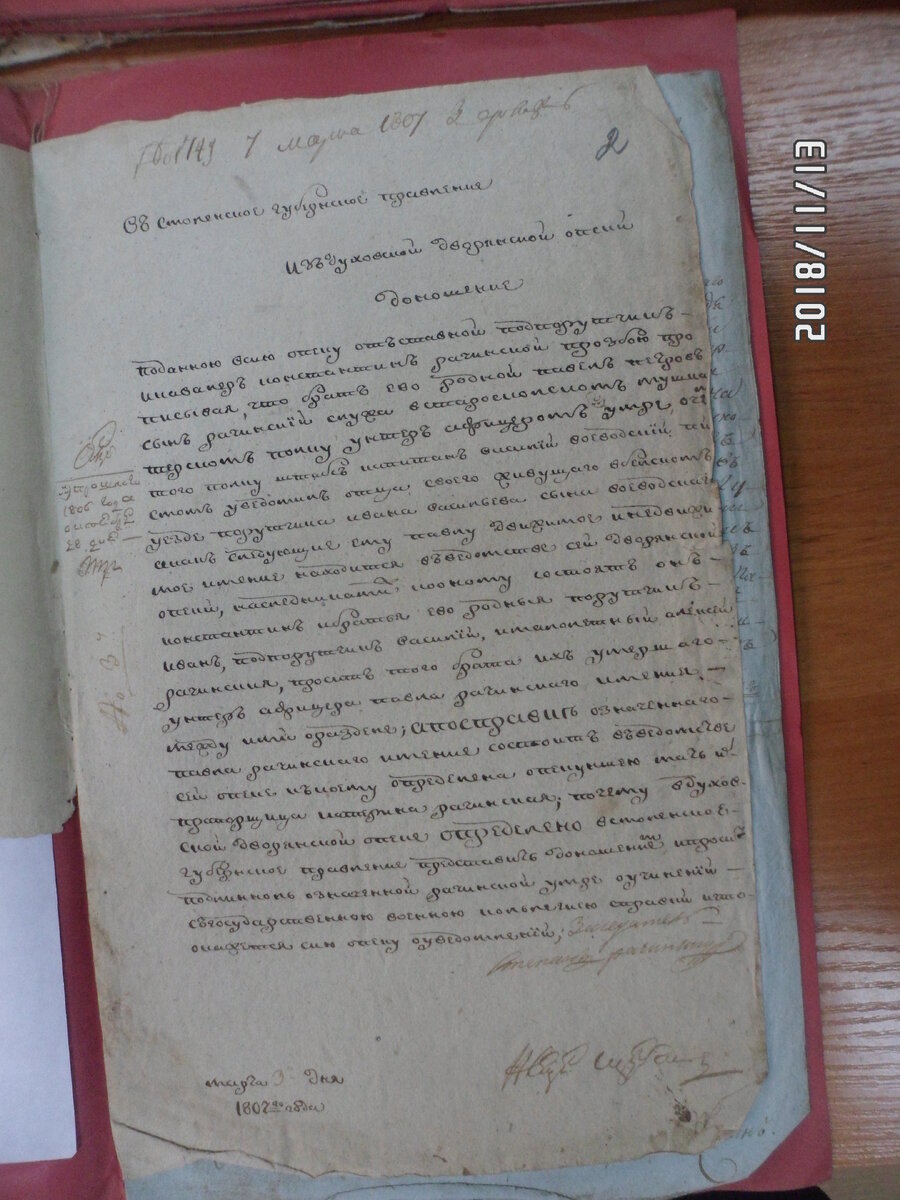 7 марта 1807
2
Въ Смоленское губернское правление
Изъ Духовской дворянской опеки
доношение
поданною всию опеку отъставной подпорутчикъ
икавалеръ константинъ рачинской прозбою про
писывая, что братъ ево родной павелъ петровъ
сынъ рачинский служа встароскольскомъ мушка
терскомъ полку унтеръ афицеромъ умре, о чемъ
того полку штапсъ капитанъ василий воеводский
уведомилъ отца своего живущаго вбельскомъ
уезде порутчика ивана васильева сына воеводскаго
следующие ему павлу движимое инедвижи
мое имение находится въведомстве сей дворянской
опеки, наследниками коному состоятъ онъ
константинъ ибратья ево родныя порутчикъ
иванъ, подпорутчикъ василий, ималолетный алексей
рачинския, просилъ того брата ихъ умершаго
унтеръ афицера павла рачинскаго имения
между ими оразделе; апосправкѣ означеннаго
павла рачинскаго имение состоитъ въведомстве
сей опеке икъному определена опекуншею мать
прапорщица катерина рачинская; почему вдухов
ской дворянской опеке определено всмоленское
губернское правление представить доношение, ипросить
подлинноль означенной рачинской умре оучинении
съгосударственною военною колегиею справки ичто
окажется сию опеку оуведомлении; Заседатель
Степанъ рачинский
марта 3 дня
1807го года
Отъ
1806 года
28 дня
2018/11/13